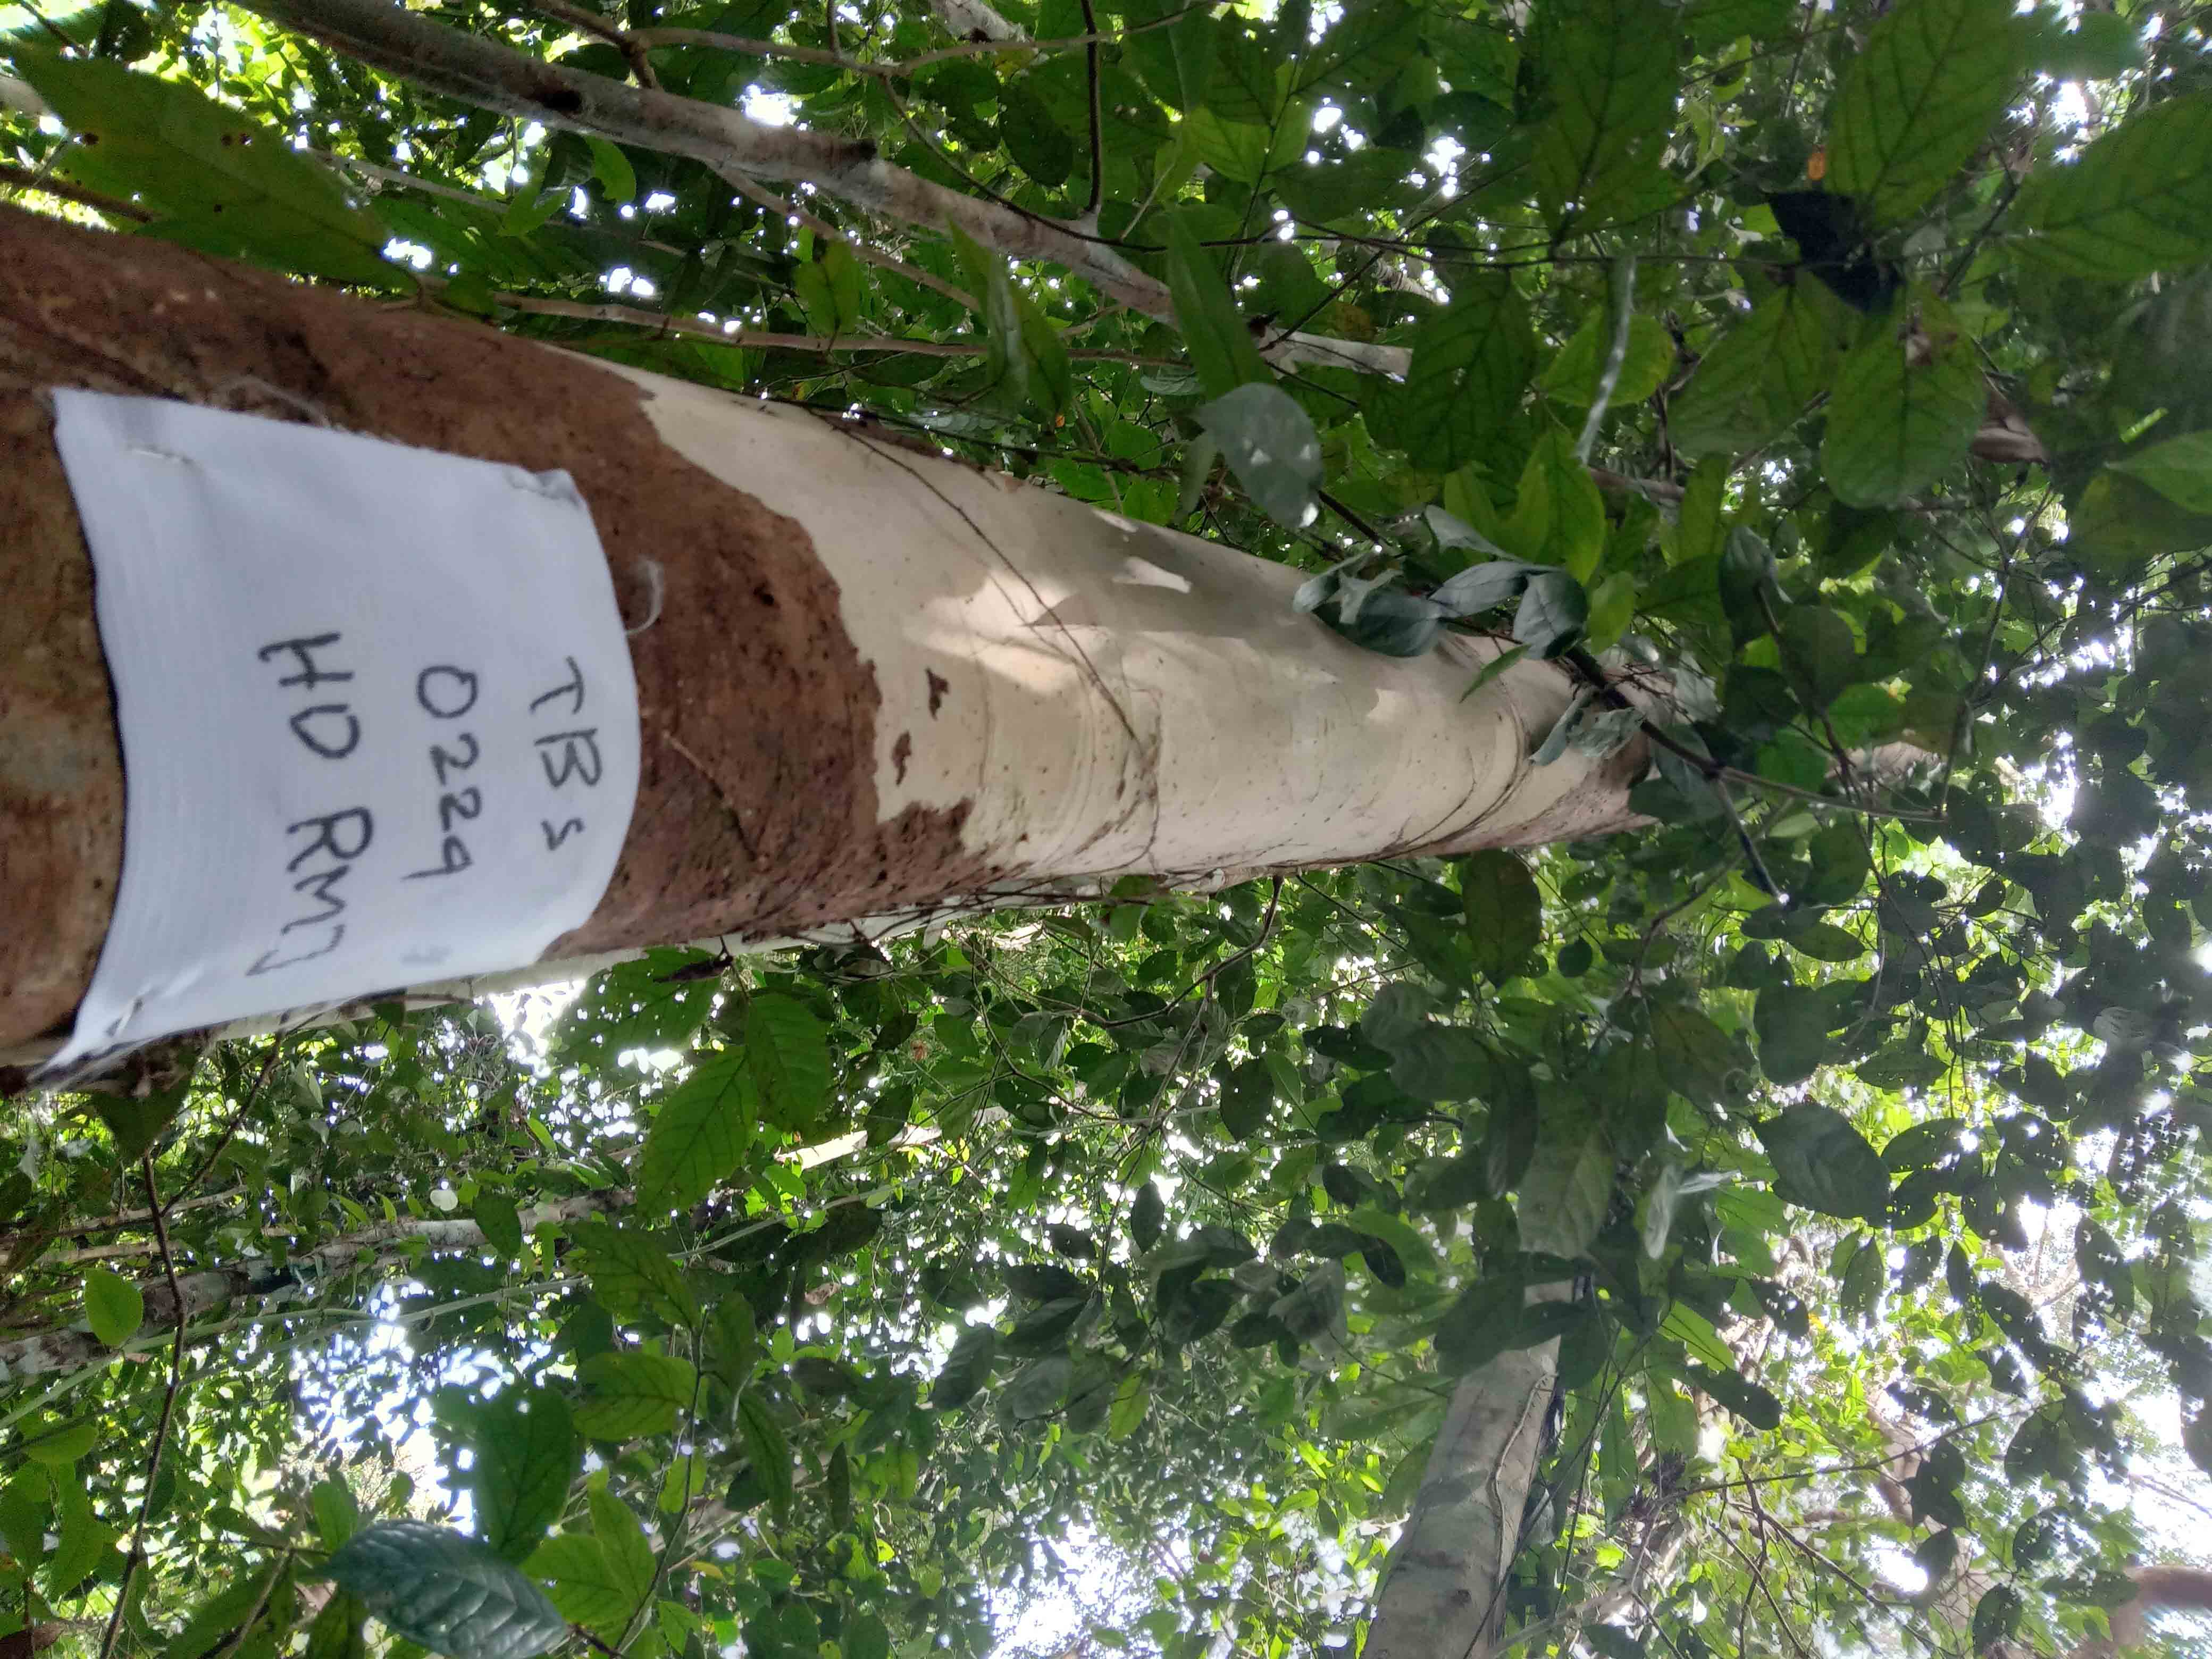 TBs
0229
HD RMJ